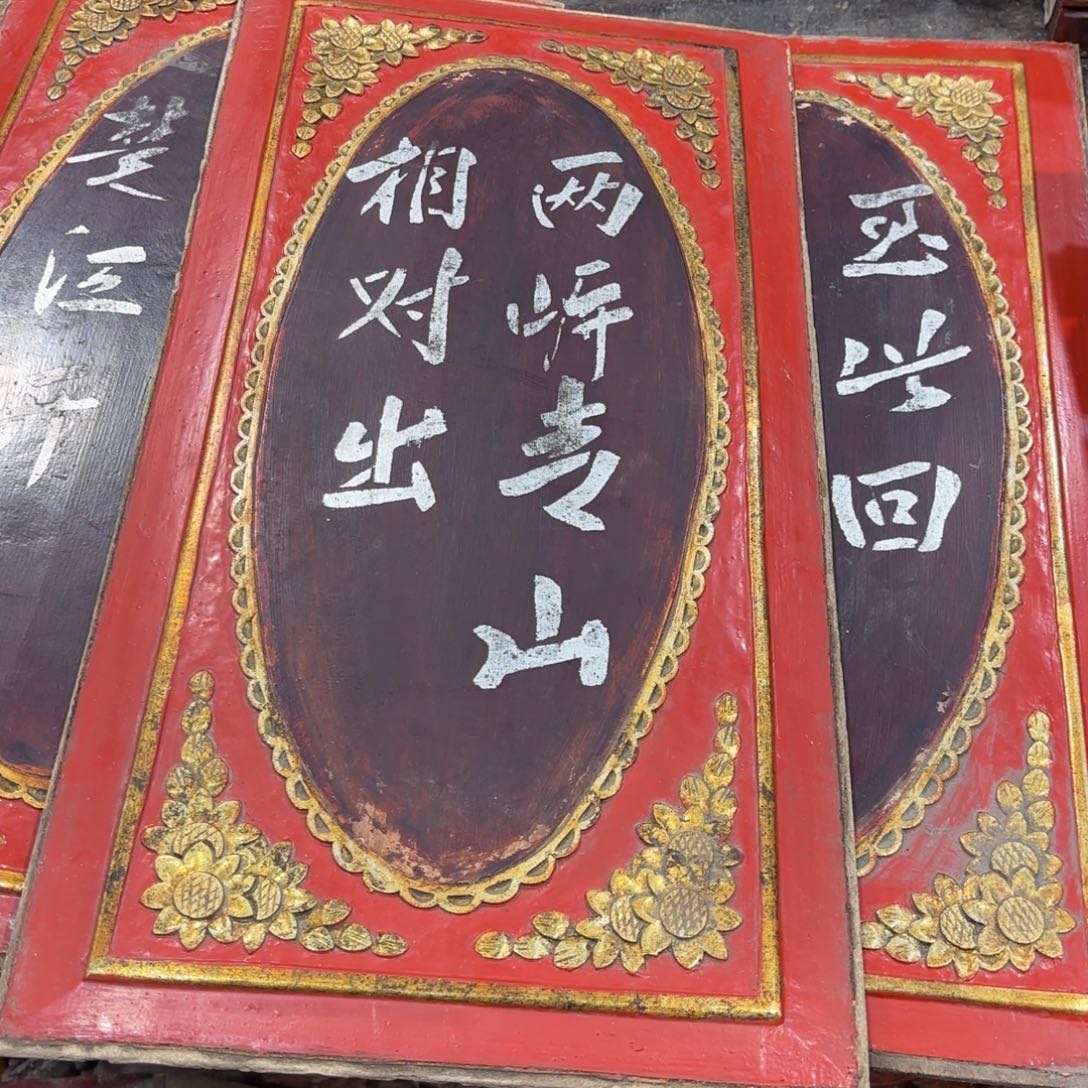 至此回
两岸青山
相对出
楚江开